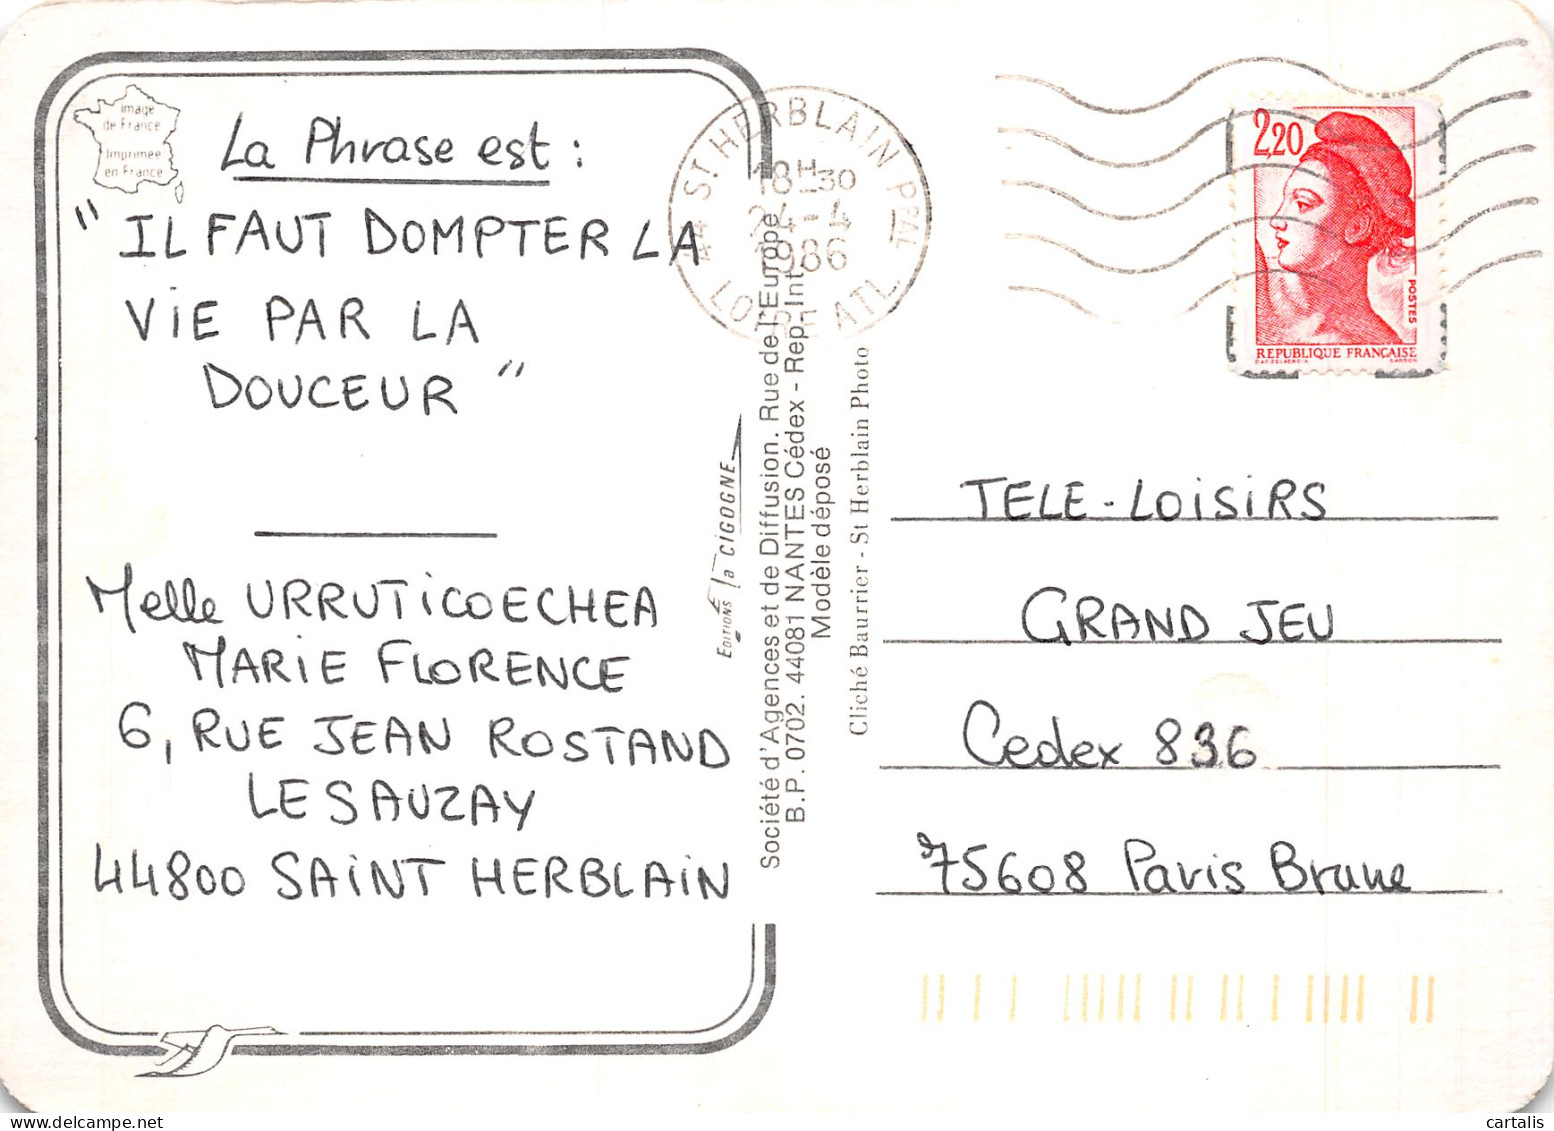 Image
de France
Imprimée
en France
La Phrase est :
" IL FAUT DOMPTER LA
ViE PAR LA
DOUCEUR "
Melle URRUTiCOECHEA
MARiE FLORENCE
6, RUE JEAN ROSTAND
LE SAUZAY
44800 SAiNT HERBLAiN
44 ST HERBLAIN PPAL
18H30
24-4
1986
LOIRE ATL.
EDITIONS la CIGOGNE
Société d'Agences et de Diffusion. Rue de l'Europe
B.P. 0702. 44081 NANTES Cédex - Rep. Int.
Modèle déposé
Cliché Baurrier - St Herblain Photo
2,20
POSTES
REPUBLIQUE FRANÇAISE
D'AP. DELACROIX
GANDON
TELE-LOiSiRS
GRAND JEU
Cedex 836
75608 Paris Brune
cartalis